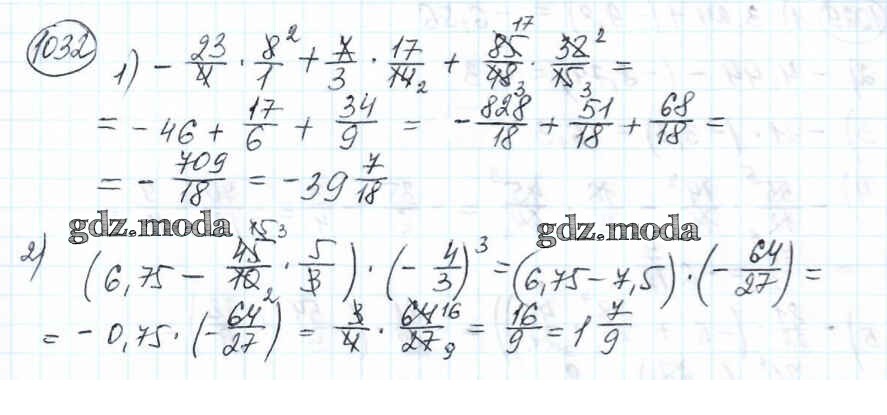 1032
1) - 23/4 · 8/1 + 7/3 · 17/14 + 85/48 · 32/15 =
= - 46 + 17/6 + 34/9 = - 828/18 + 51/18 + 68/18 =
= - 709/18 = - 39 7/18
gdz.moda gdz.moda
2) (6,75 - 45/10 · 5/3) · (- 4/3)^3 = (6,75 - 7,5) · (- 64/27) =
= - 0,75 · (- 64/27) = 3/4 · 64/27 = 16/9 = 1 7/9